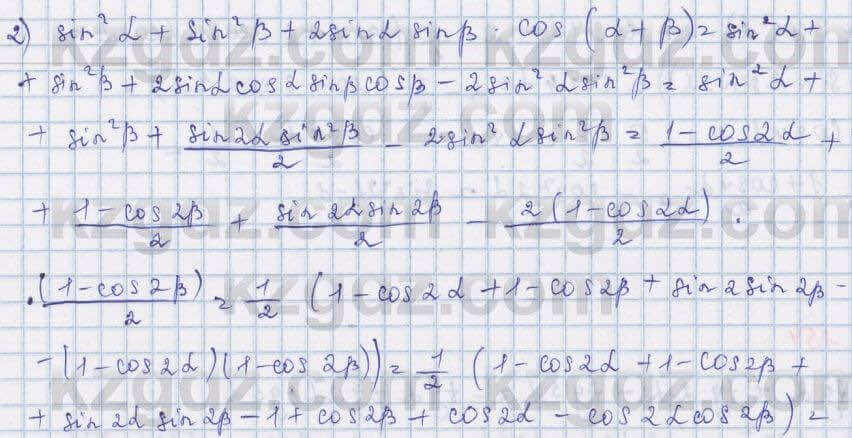 2) sin² α + sin² β + 2sinα sinβ · cos (α + β) = sin² α +
+ sin² β + 2sinα cosα sinβ cosβ − 2sin² α sin² β = sin² α +
+ sin² β + sin2α sin²β / 2 − 2sin² α sin² β = 1−cos2α / 2 +
+ 1−cos2β / 2 + sin2α sin2β / 2 − 2(1−cos2α) / 2 ·
· (1−cos2β) / 2 = 1/2 (1−cos2α + 1−cos2β + sin2sin2β −
− (1−cos2α)(1−cos2β)) = 1/2 (1−cos2α + 1−cos2β +
+ sin2α sin2β − 1 + cos2β + cos2α − cos2α cos2β) =
kzgdz.com